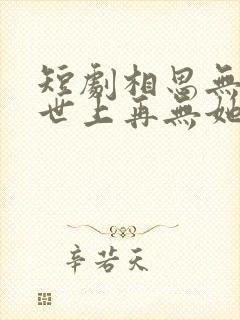 短劇相思無
世上再無她
辛若天